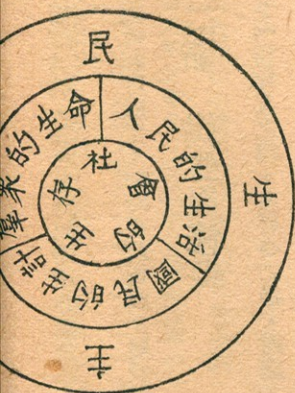 民生主
人民的生活
國民的生計
羣衆的生命
社會的生存